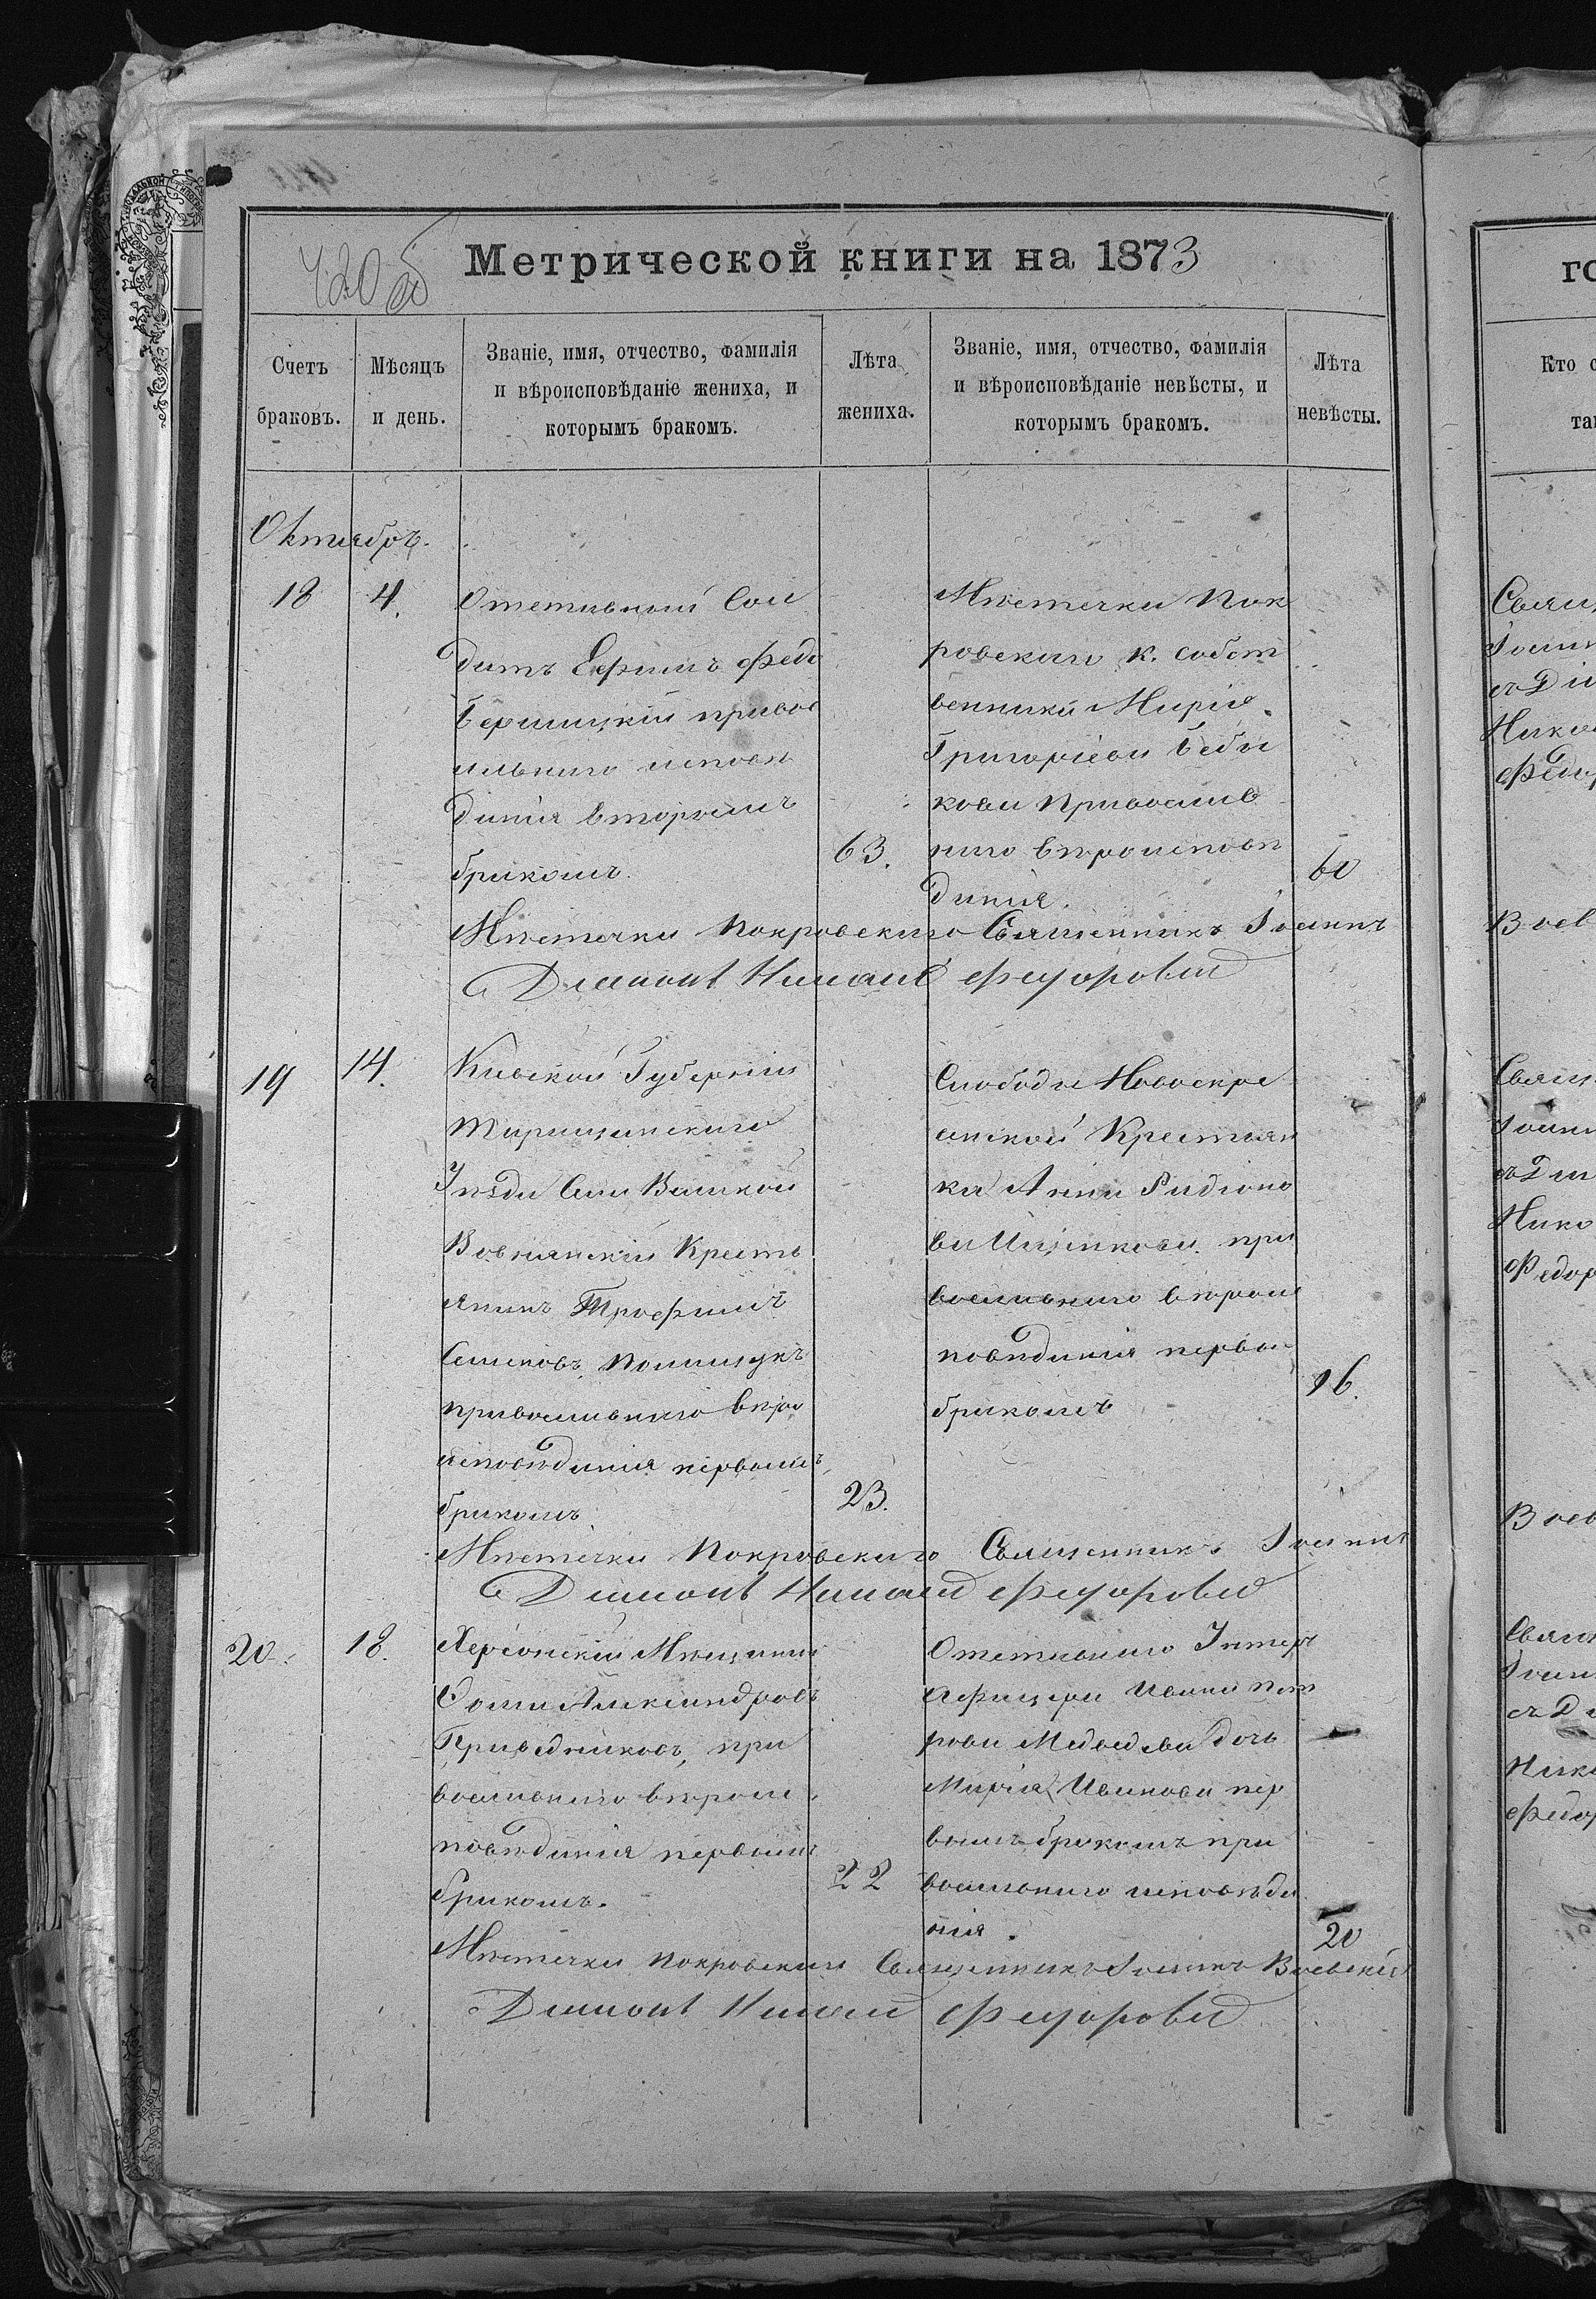 420 об
Метрической книги на 1873
Счетъ браковъ.
Мѣсяцъ и день.
Званіе, имя, отчество, фамилія
и вѣроисповѣданіе жениха, и
которымъ бракомъ.
Лѣта жениха.
Званіе, имя, отчество, фамилія
и вѣроисповѣданіе невѣсты, и
которымъ бракомъ.
Лѣта невѣсты.
Октябрь.
18
4.
Отставный Сол
датъ Ефимъ Федо
правос
лавнаго исповѣ
данія вторымъ
бракомъ.
63.
Мѣстечка Пок
ровскаго к. собст
венника Марія
Григоріева
кова Православ
наго вѣроисповѣ
данія.
60
Мѣстечка Покровскаго Священникъ Іоаннъ
Діаконъ Николай Федоровъ
19
14.
Кіевской Губерніи
Таращанскаго
Уѣзда Села Великой
Вовнянскій Кресть
янинъ Трофимъ
Семеновъ Полищукъ
православнаго вѣро
исповѣданія первымъ
бракомъ
23.
Слободы Новоскре
анской Крестьян
ка Анна Радіоно
ва при
вославнаго вѣроис
повѣданія первы
бракомъ
16.
Мѣстечка Покровскаго Священникъ Іоаннъ
Діаконъ Николай Федоровъ
20.
18.
Херсонскій Мѣщанинъ
Фома Александровъ
Праведниковъ, пра
вославнаго вѣроис
повѣданія первымъ
бракомъ.
22
Отставнаго Унтеръ
Офицера Ивана Пет
рова Медведева дочь
Марія Иванова пер
вымъ бракомъ пра
вославнаго исповѣда
нія.
20
Мѣстечка Покровскаго Священникъ Іоаннъ Воевскій
Діаконъ Николай Федоровъ
го
Кто с
та
Свящ
Іоанн
съ Ді
Никол
Федор
Воев
Свящ
Іоанн
съ Ді
Нико
Федор
Воев
Свящ
Іоан
съ Д
Нико
Федор